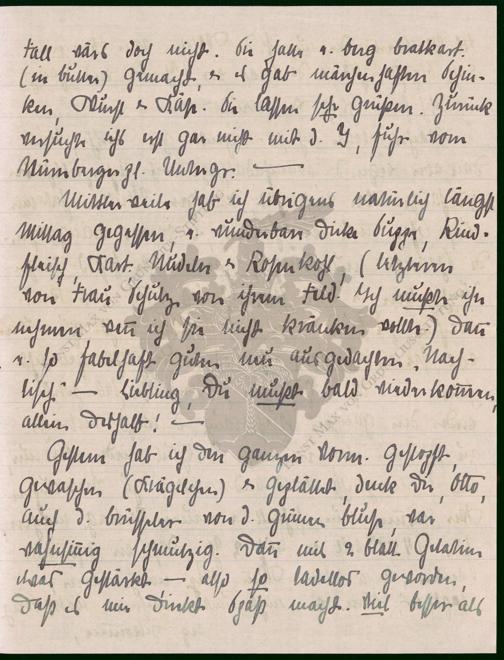 Fall wärs doch nicht. Sie hatte n. berg bratkart.
(in butter) gemacht, & es gab märchenhaften Schin-
ken, Wurst & Käse. Sie lassen sehr grüßen. Zurück
versuchte ichs erst gar nicht mit d. Y, fuhr vom
Nürnbergerpl. Untergr. —
Mittlerweile hab ich übrigens natürlich längst
Mittag gegessen, n. wunderbar dicke Suppe, Rind-
fleisch, Kart. Nudeln & Rosenkohl, (letzteren
von Frau Schulz von ihrem Feld. Ich mußte ihn
nehmen wenn ich sie nicht kränken wollte) Dann
n. so fabelhaft guten neu ausgedachten Nach-
tisch — Liebling, Du mußt bald wiederkommen,
allein deshalb! —
Gestern hab ich den ganzen Vorm. gestopft,
gewaschen (Krägelchen) & geplättet, denk Dir, Otto,
auch d. brüsseler von d. grünen bluse war
wahnsinnig schmutzig. Dann mit 2 blatt Gelatine
etwas gestärkt — also so tadellos geworden,
daß es mir direkt Spaß macht. Viel besser als